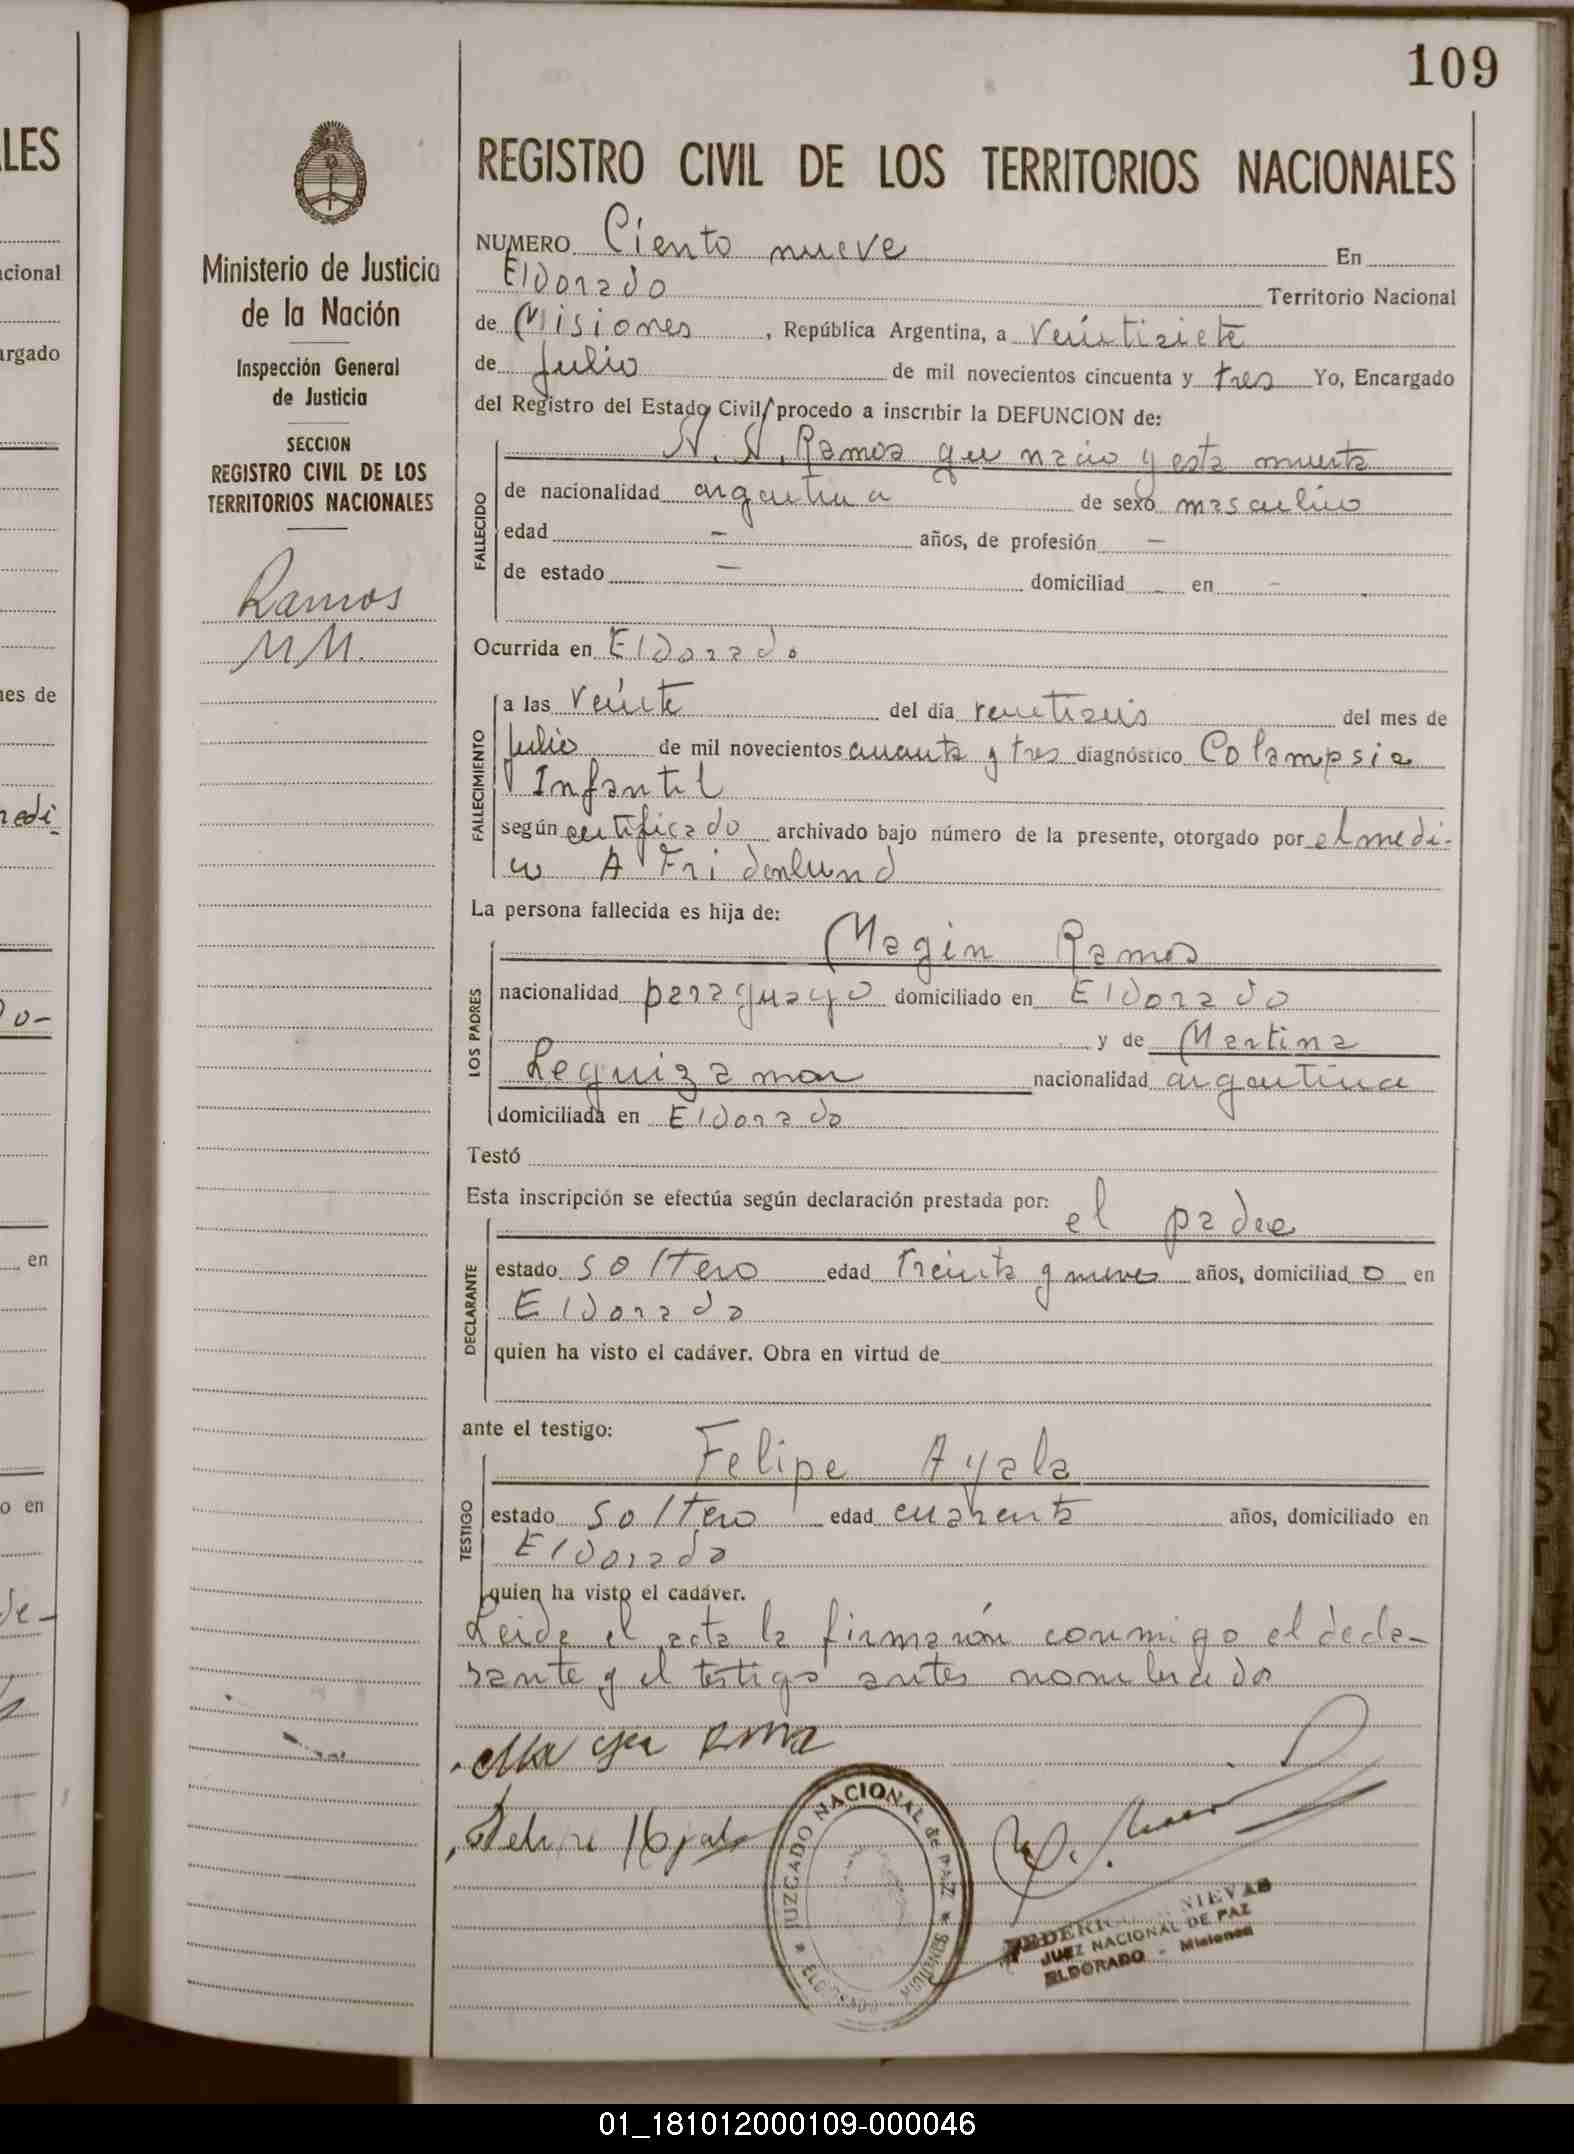 109
LES
REGISTRO CIVIL DE LOS TERRITORIOS NACIONALES
Ministerio de Justicia
de la Nación
Inspección General
de Justicia
SECCION
REGISTRO CIVIL DE LOS
TERRITORIOS NACIONALES
Ramos
N.N.
NUMERO Ciento nueve En
Eldorado Territorio Nacional
de Misiones, República Argentina, a Veintisiete
de Julio de mil novecientos cincuenta y tres Yo, Encargado
del Registro del Estado Civil, procedo a inscribir la DEFUNCION de:
N. N. Ramos que nacio y esta muerta
FALLECIDO
de nacionalidad argentina de sexo masculino
edad - años, de profesión -
de estado - domiciliad - en -
Ocurrida en Eldorado
FALLECIMIENTO
a las Veinte del día veintiseis del mes de
Julio de mil novecientos cuenta y tres diagnóstico Colampsia
Infantil
según certificado archivado bajo número de la presente, otorgado por el medi-
co A Fridenlund
La persona fallecida es hija de:
Magin Ramos
LOS PADRES
nacionalidad paraguayo domiciliado en Eldorado
y de Martina
Leguizamon nacionalidad argentina
domiciliada en Eldorado
Testó
Esta inscripción se efectúa según declaración prestada por:
el padre
DECLARANTE
estado soltero edad Treinta y nueve años, domiciliad o en
Eldorado
quien ha visto el cadáver. Obra en virtud de
ante el testigo:
Felipe Ayala
TESTIGO
estado soltero edad cuarenta años, domiciliado en
Eldorado
quien ha visto el cadáver.
Leida el acta la firmarón conmigo el decla-
rante y el testigo antes nombrado
Felipe Ayala
JUZGADO NACIONAL de PAZ * ELDORADO MISIONES *
NIEVAS
JUEZ NACIONAL DE PAZ
ELDORADO - Misiones
cional
argado
nes de
medi-
do-
en
o en
de-
01_181012000109-000046